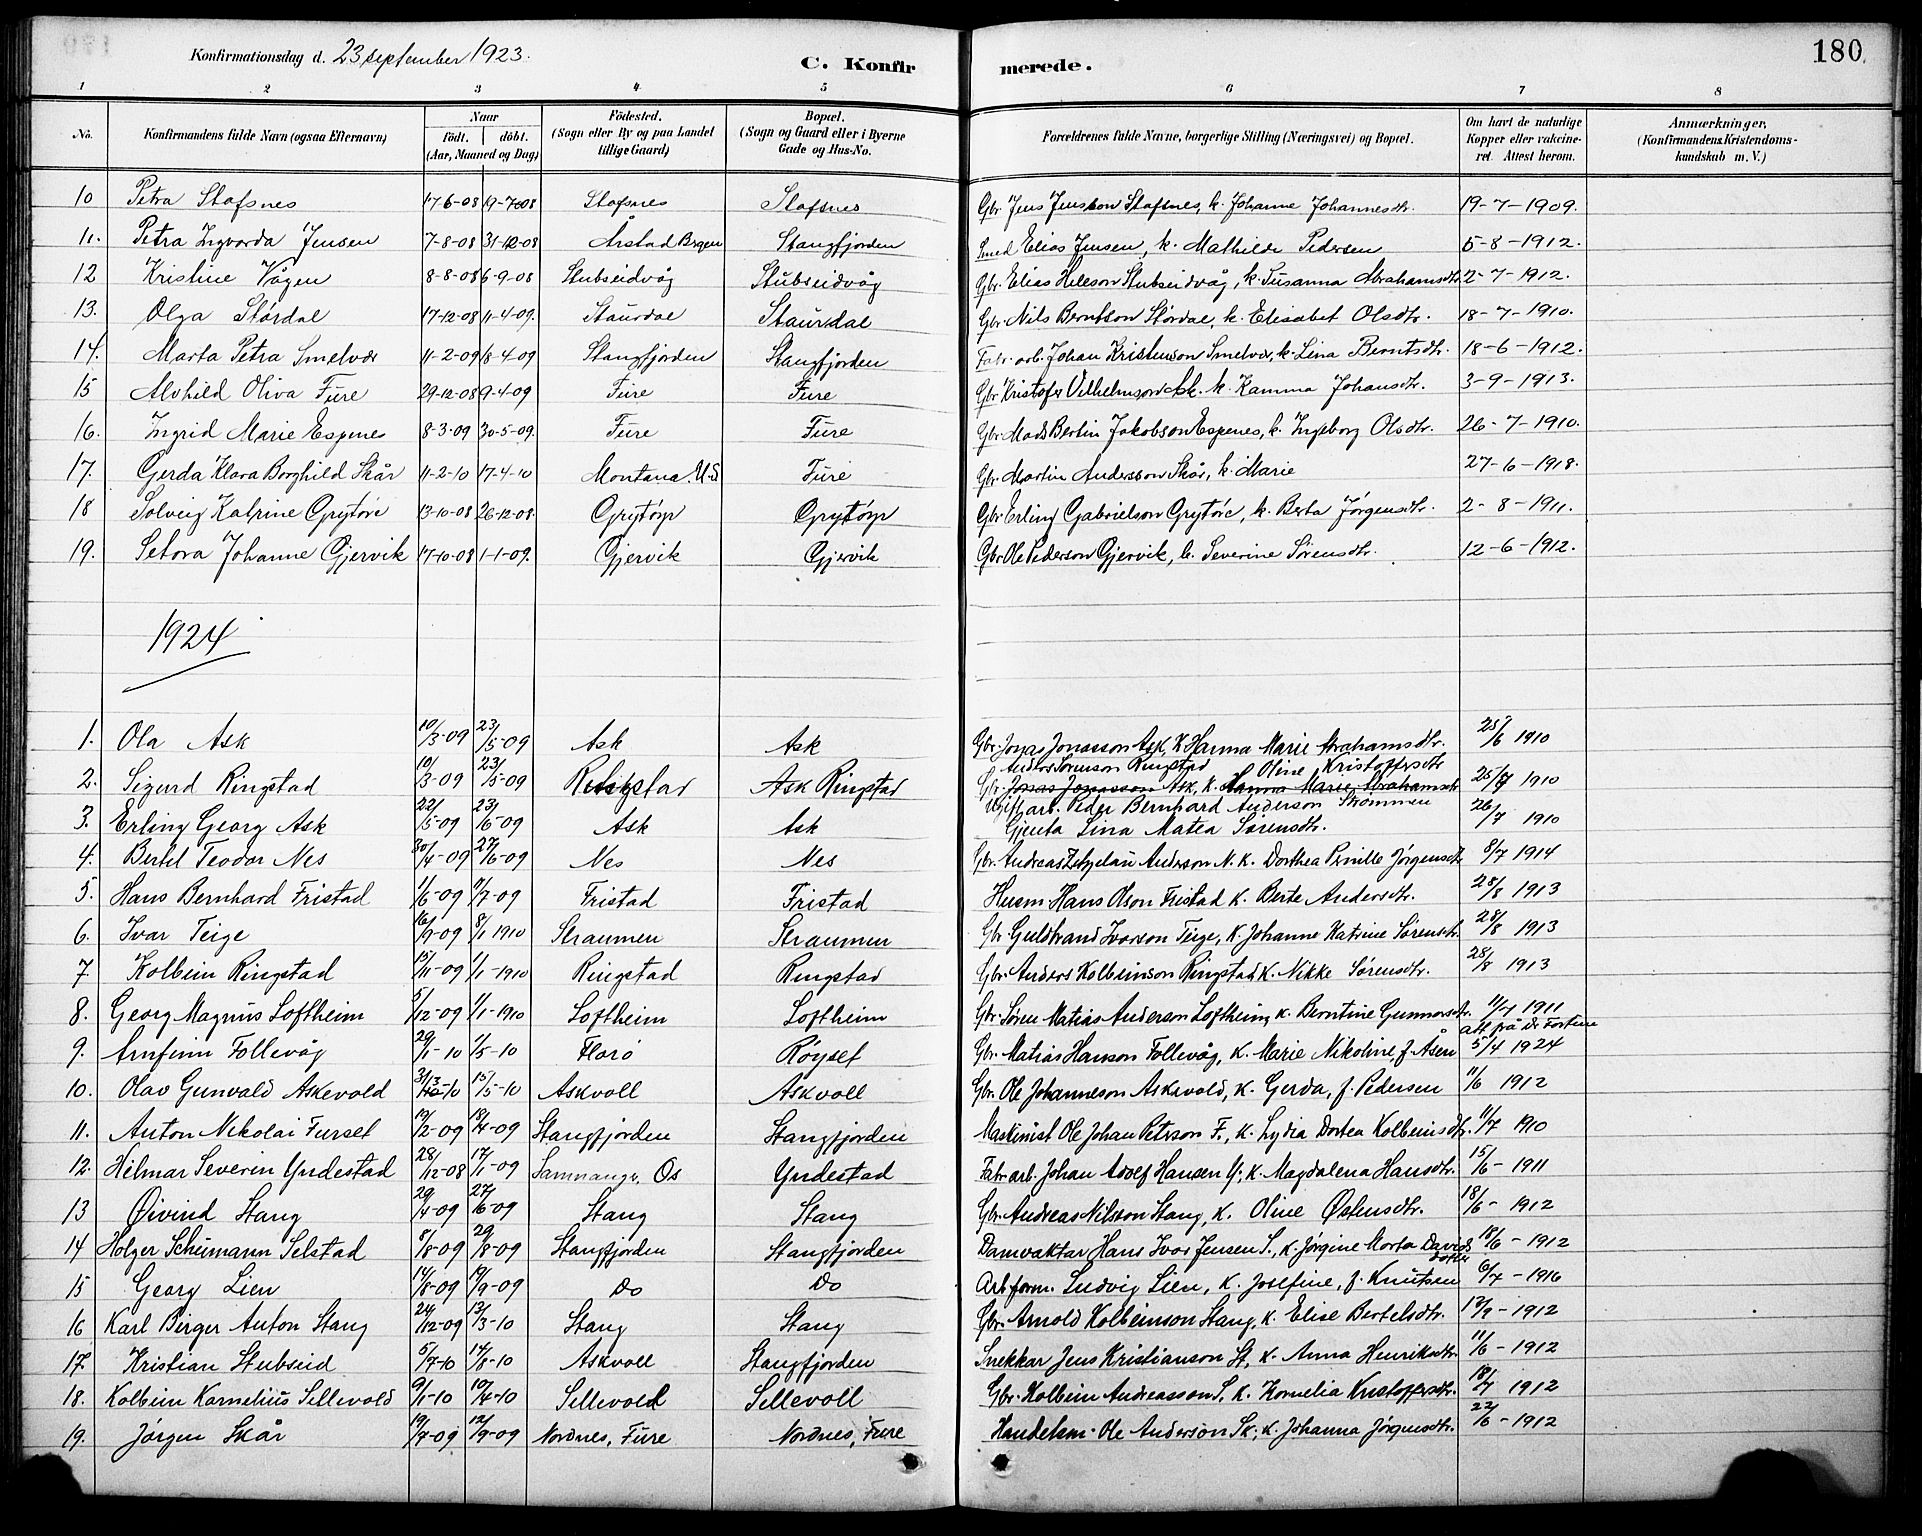 Konfirmationsdag d. 23 september 1923. C. Konfirmerede. 180
1 2 3 4 5 6 7 8
No. Konfirmandens fulde Navn (ogsaa Efternavn) Naar født. døbt. (Aar, Maaned og Dag) Fødested. (Sogn eller By og paa Landet tillige Gaard) Bopæl. (Sogn og Gaard eller i Byerne Gade og Hus-No. Forældrenes fulde Navne, borgerlige Stilling (Næringsvei) og Bopæl. Om havt de naturlige Kopper eller vakcineret. Attest herom. Anmærkninger, (Konfirmandens Kristendomskundskab m. V.)
10 Petra Stafsnes 17-6-08 19-7-08 Stafsnes Stafsnes Gbr. Jens Jensson Stafsnes, k. Johanne Johannesdtr. 19-7-1909.
11. Petra Ingvarda Jensen 7-8-08 31-12-08 Årstad Bergen Stangfjorden Smed Elias Jensen, k. Mathilde Pedersen 5-8-1912.
12 Kristine Vågen 8-8-08 6-9-08 Stubseidvåg Stubseidvåg Gbr. Elias Stubseidvåg, k. Susanna Abrahamsdtr. 2-7-1912.
13. Olga Stårdal 17-12-08 11-4-09. Staurdal Staurdal Gbr. Nils Berntson Stårdal, k. Elisabet Olsdtr. 18-7-1910.
14. Marta Petra Smelvær 11-2-09 18-4-09 Stangfjorden Stangfjorden Fabr. arb. Johan Kristenson Smelvær, k. Lina Berntsdtr. 18-6-1912.
15 Alvhild Oliva Fure 29-12-08 9-4-09 Fure Fure Gbr. Kristofer Vilhelmson k. Kamma Johansdtr. 3-9-1913.
16. Ingrid Marie Espenes 8-3-09 30-5-09. Fure Fure Gbr. Mads Bertin Jakobson Espenes, k. Ingeborg Olsdtr. 26-7-1910.
17. Gerda Klara Borghild Skår 11-2-10 17-4-10 Montana. U.S Fure Gbr. Martin Andersson Skår, k. Marie 27-6-1918.
18 Solveig Katrine Grytøre 13-10-08 26-12-08. Grytøyr Grytøyr Gbr. Erling Gabrielson Grytøre, k. Berta Jørgensdtr. 2-8-1911.
19. Setora Johanne Gjervik 17-10-08 1-1-09. Gjervik Gjervik Gbr. Ole Pederson Gjervik, k. Severine Sørensdtr. 12-6-1912.
1924
1. Ola Ask 10/3-09 23/5-09 Ask Ask Gbr. Jonas Jonasson Ask, K. Hanna Marie Abrahamsdtr. 25/6 1910
Anders Sørenson Ringstad Oline Kristoffersdtr
2. Sigurd Ringstad 10/3-09 23/5-09 Ringstad Ask Ringstad Gbr. Jonas Jonasson Ask, K. Hanna Marie Abrahamsdtr 25/7 1910
3. Erling Georg Ask 22/5-09 23/6-09 Ask Ask Ugift arb. Peder Bernhard Anderson Strømmen 26/7 1910
Gjenta Lina Matea Sørensdtr.
4. Bertel Teodor Nes 30/4-09 27/6-09 Nes Nes Gbr. Andreas Anderson N. K. Dorthea Pernille Jørgensdtr 8/7 1914
5. Hans Bernhard Fristad 1/6-09 11/7-09 Fristad Fristad Husm Hans Olson Fristad K. Berte Andersdtr. 28/8 1913
6. Ivar Teige 16/9-09 8/1 1910 Straumen Straumen Gbr Guldbrand Ivarson Teige, K. Johanne Katrine Sørensdtr 28/8 1913
7. Kolbein Ringstad 15/11-09 1/1-1910 Ringstad Ringstad Gbr. Anders Kolbeinson Ringstad K. Nikke Sørensdtr. 28/8 1913
8. Georg Magnus Loftheim 5/12-09 1/1-1910 Loftheim Loftheim Gbr. Søren Matias Anderson Loftheim, K. Berntine Gunnarsdtr. 11/7 1911
att frå Dr Fortun
9. Arnfinn Follevåg 29/1-10 1/5-10 Florø Røyset Gbr. Matias Hanson Follevåg, K. Marie Nikoline, f. Åsen 5/4 1924
10. Olav Gunvald Askevold 3/3-10 15/5-10 Askvoll Askvoll Gbr. Ole Johanneson Askevold, K. Gerda, f. Pedersen 11/6 1912
11. Anton Nikolai Furset 19/2-09 18/4-09 Stangfjorden Stangfjorden Maskinist Ole Johan Peterson F., K. Lydia Dortea Kolbeinsdtr. 11/7 1910
12. Hilmar Severin Yndestad 28/12-08 17/1-09 Samnangr, Os Yndestad Fabr. arb. Johan Adolf Hansen Y; K. Magdalena Hansdtr. 15/6-1911
13 Øivind Stang 29/4-09 27/6-09 Stang Stang Gbr. Andreas Nilsson Stang, K. Oline Østensdtr. 18/6-1912
14 Holger Schumann Selstad 8/8-09 29/8-09 Stangfjorden Stangfjorden Damvaktar Hans Ivar Jensen S., K. Jørgine Marta Davids dotter 18/6-1912
15 Georg Lien 14/8-09 19/9-09 Do Do Arb. form. Ludvig Lien, K. Josefine, f. Knutsen 6/7-1916
16 Karl Birger Anton Stang 24/12-09 13/3-10 Stang Stang Gbr. Arnold Kolbeinson Stang, K. Elise Bertelsdtr. 17/9-1912
17. Kristian Stubseid 5/7-10 14/8-10 Askvoll Stangfjorden Snekkar Jens Kristianson St, K. Anna Henriksdtr. 11/6-1912
18. Kolbein Kornelius Sellevold 9/1-10 10/4-10 Sellevold Sellevoll Gbr. Kolbein Andreasson S. K. Kornelia Kristoffersdtr. 18/7 1912
19. Jørgen Skår 19/7-09 12/9-09 Nordnes, Fure Nordnes, Fure Handelsm. Ole Anderson Sk; K. Johanna Jørgensdtr. 22/6-1912